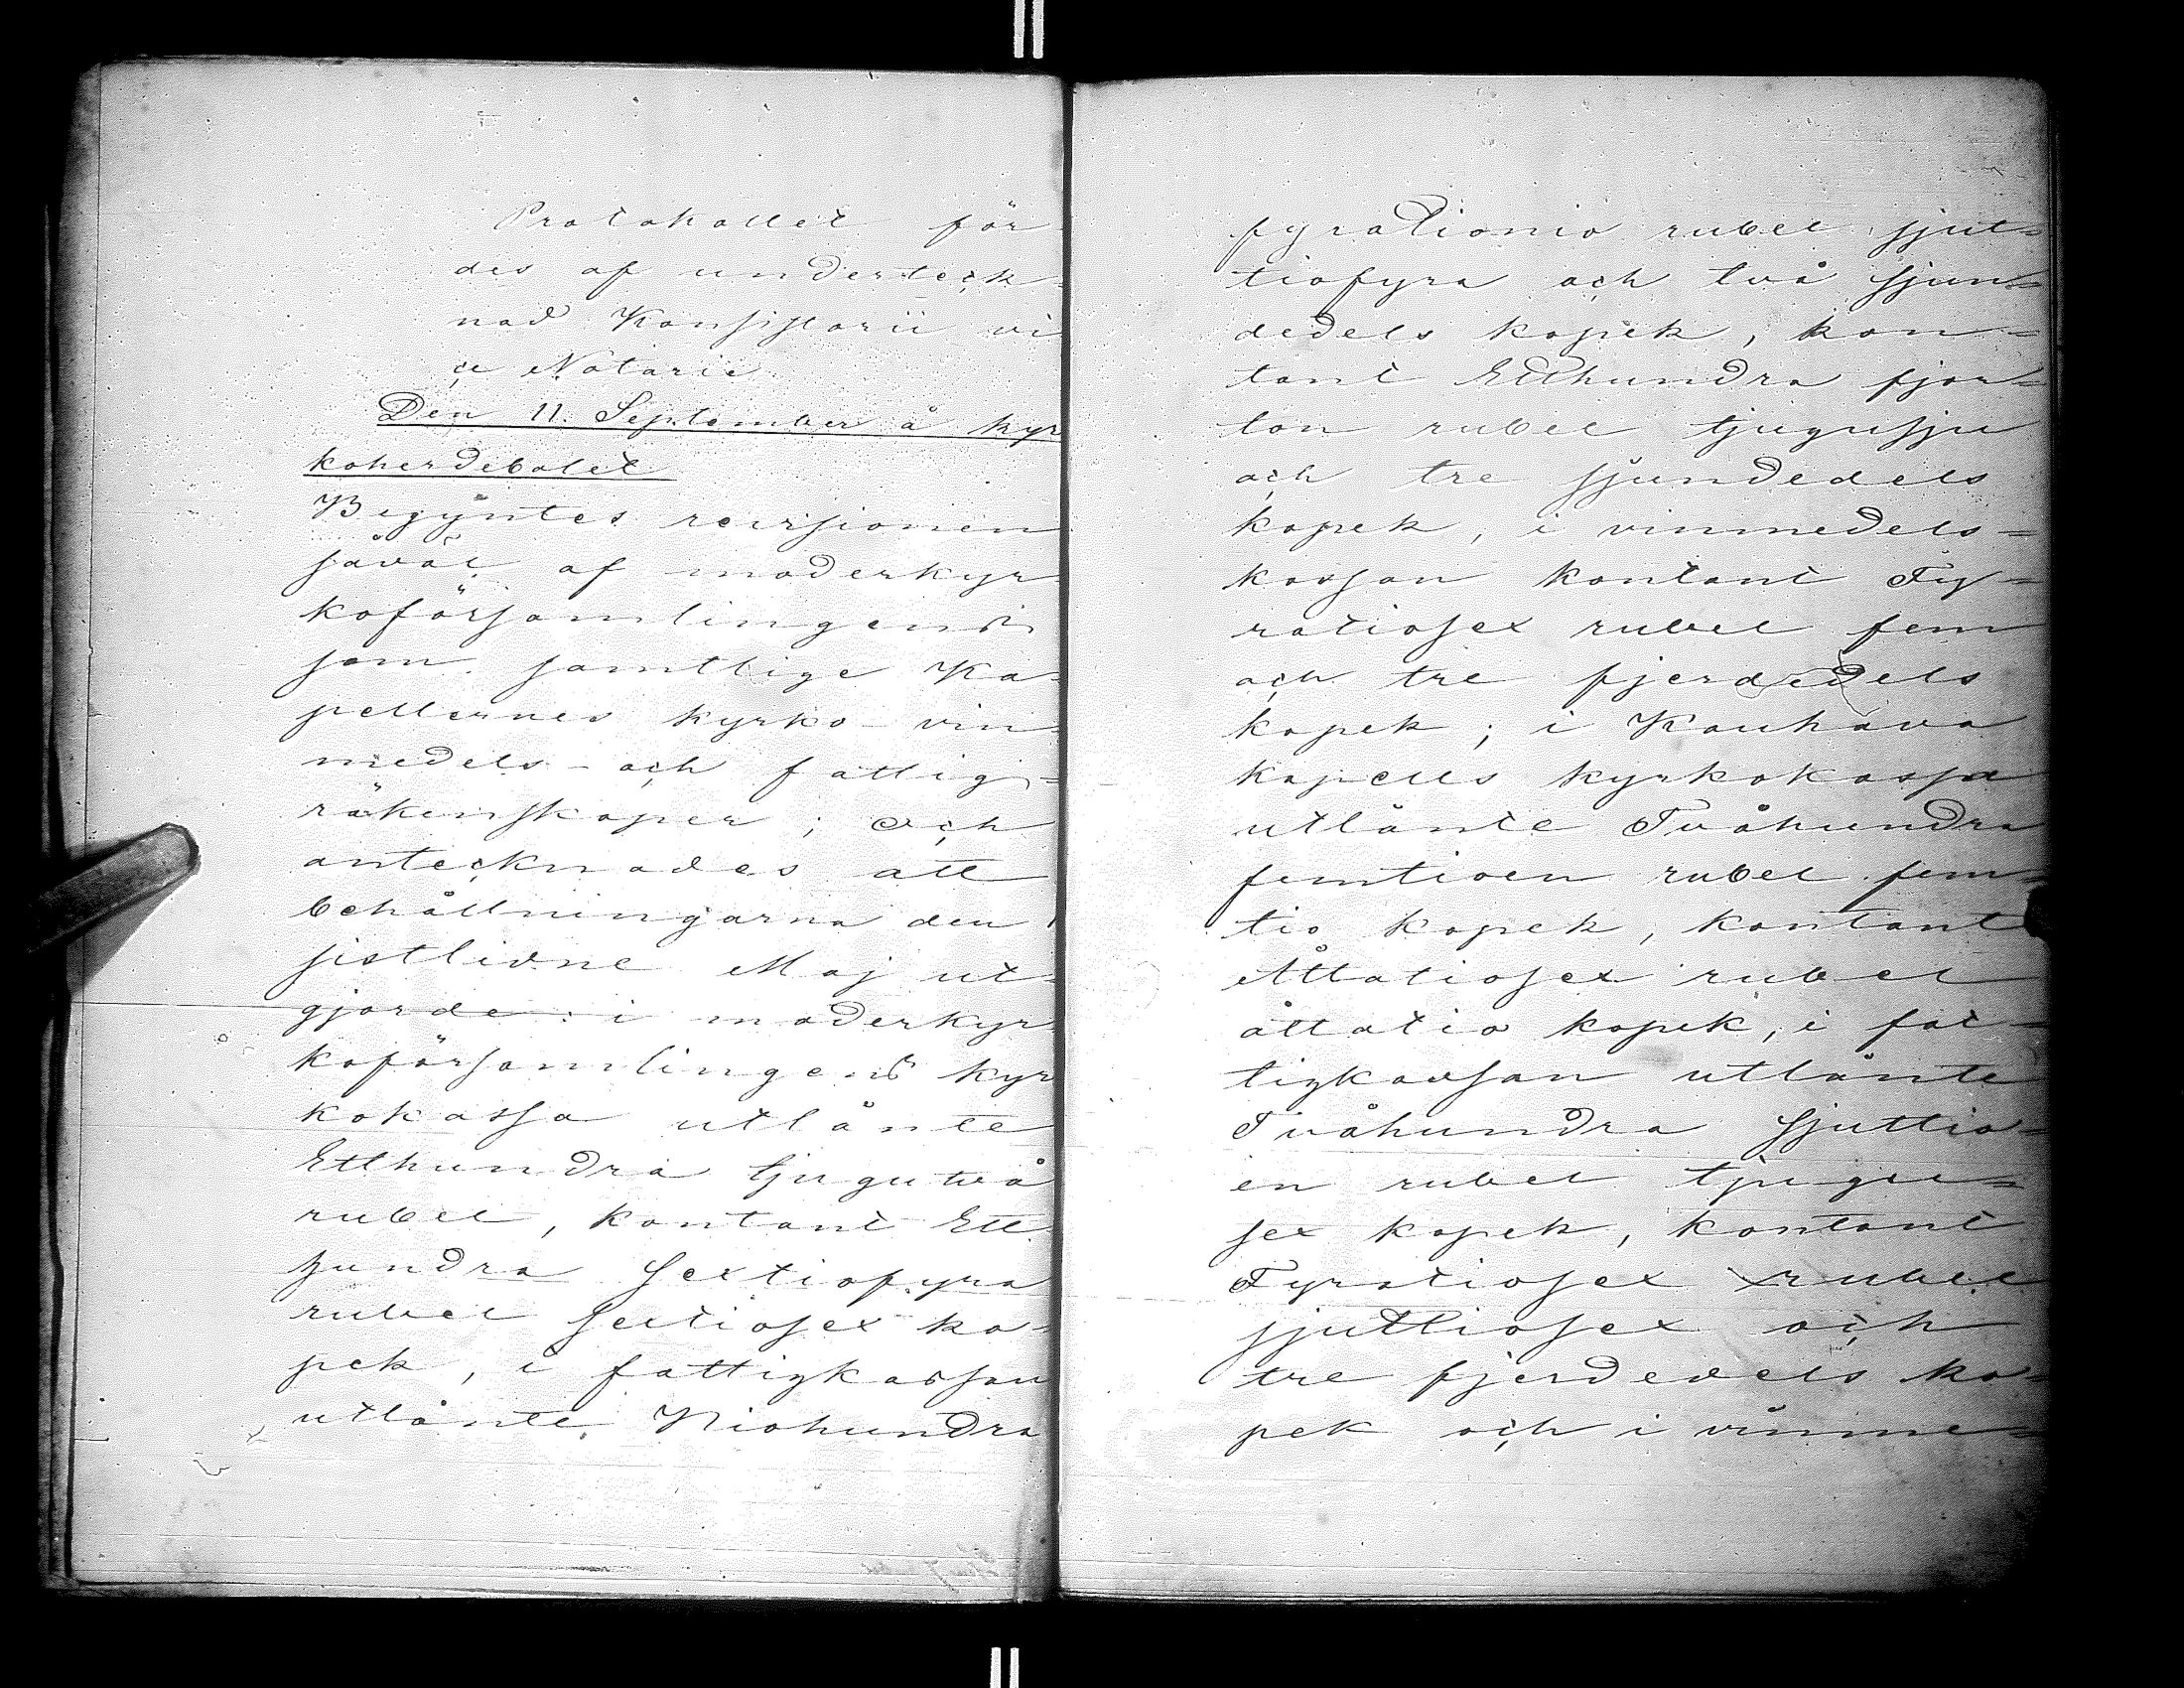 Protokollet för-
des af underteck-
nad Konsistorii vi
ce Notarie
Den 11. September å kyr
koherdebolet
Begyntes revisionen
såväl af moderkyr
koförsamlingens
som samtlige Ka-
pellernes kyrko- vin-
medels- och fattig-
räkenskaper; och
antecknades att
behållningarna den 1
sistlidne Maj ut-
gjorde: i moderkyr
koförsamlingens kyr
kokassa utlånte
Etthundra tjugutvå
rubel, kontant Ett
hundra sextiofyra
rubel sextiosex ko-
pek, i fattigkassan
utlånte Niohundra
fyrationio rubel sjut-
tiofyra och två sjun-
dedels kopek, kon-
tant Etthundra fjor-
ton rubel tjugusju
och tre sjundedels
kopek, i vinmedels-
kassan kontant Fy-
ratiosex rubel fem
och tre fjerdedels
kopek; i Kauhava
kapells kyrkokassa
utlånte Tvåhundra
femtioen rubel fem-
tio kopek, kontant
Åttatiosex rubel
åttatio kopek, i fat-
tigkassan utlånte
Tvåhundra sjuttio-
en rubel tjugu-
sex kopek, kontant
Fyratiosex rubel
sjuttiosex och
tre fjerdedels ko-
pek och i vinme-